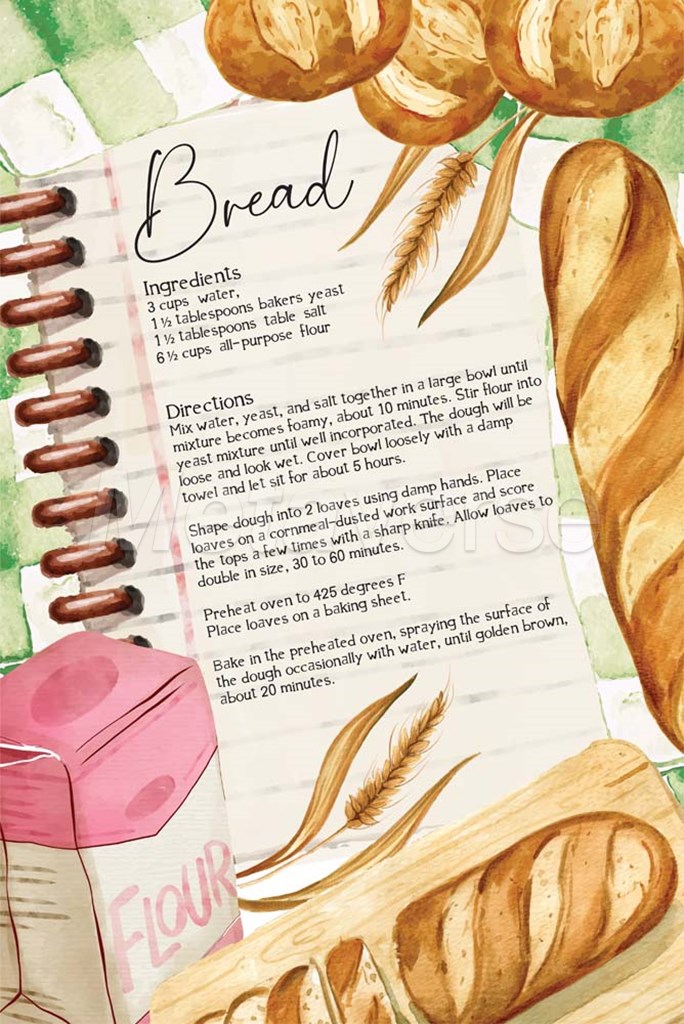 Bread
Ingredients
3 cups water,
1 ½ tablespoons bakers yeast
1 ½ tablespoons table salt
6 ½ cups all-purpose flour
Directions
Mix water, yeast, and salt together in a large bowl until
mixture becomes foamy, about 10 minutes. Stir flour into
yeast mixture until well incorporated. The dough will be
loose and look wet. Cover bowl loosely with a damp
towel and let sit for about 5 hours.
Shape dough into 2 loaves using damp hands. Place
loaves on a cornmeal-dusted work surface and score
the tops a few times with a sharp knife. Allow loaves to
double in size, 30 to 60 minutes.
Preheat oven to 425 degrees F
Place loaves on a baking sheet.
Bake in the preheated oven, spraying the surface of
the dough occasionally with water, until golden brown,
about 20 minutes.
FLOUR